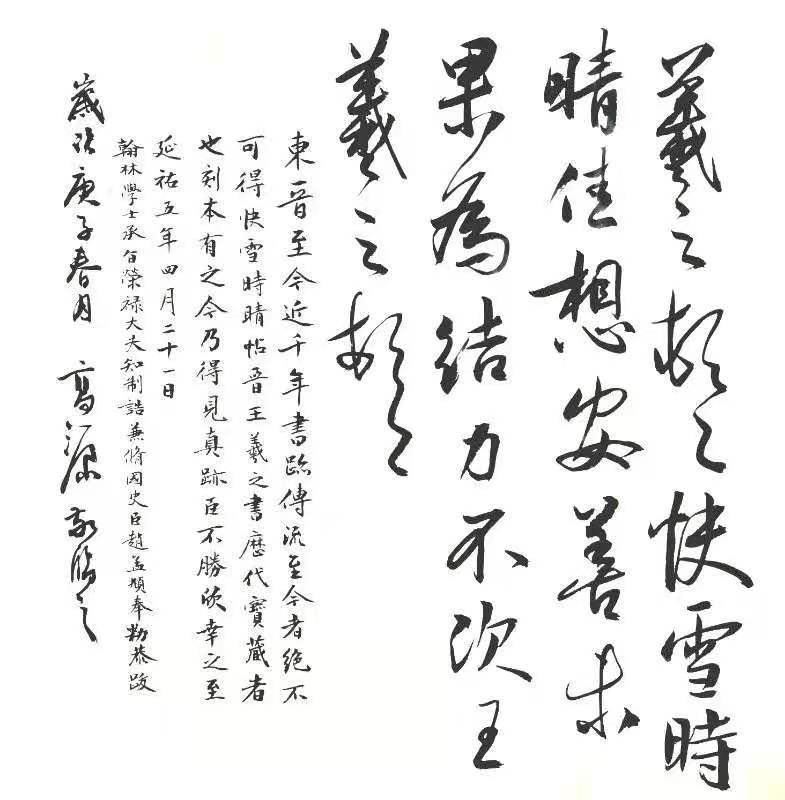 羲之頓首快雪時
晴佳想安善未
果為結力不次王
羲之頓首
東晉至今近千年書跡傳流至今者絶不
可得快雪時晴帖晉王羲之書歷代寶藏者
也刻本有之今乃得見真跡臣不勝欣幸之至
延祐五年四月二十一日
翰林學士承旨榮祿大夫知制誥兼脩國史臣趙孟頫奉勅恭跋
歲次庚子春月 高源敬臨之